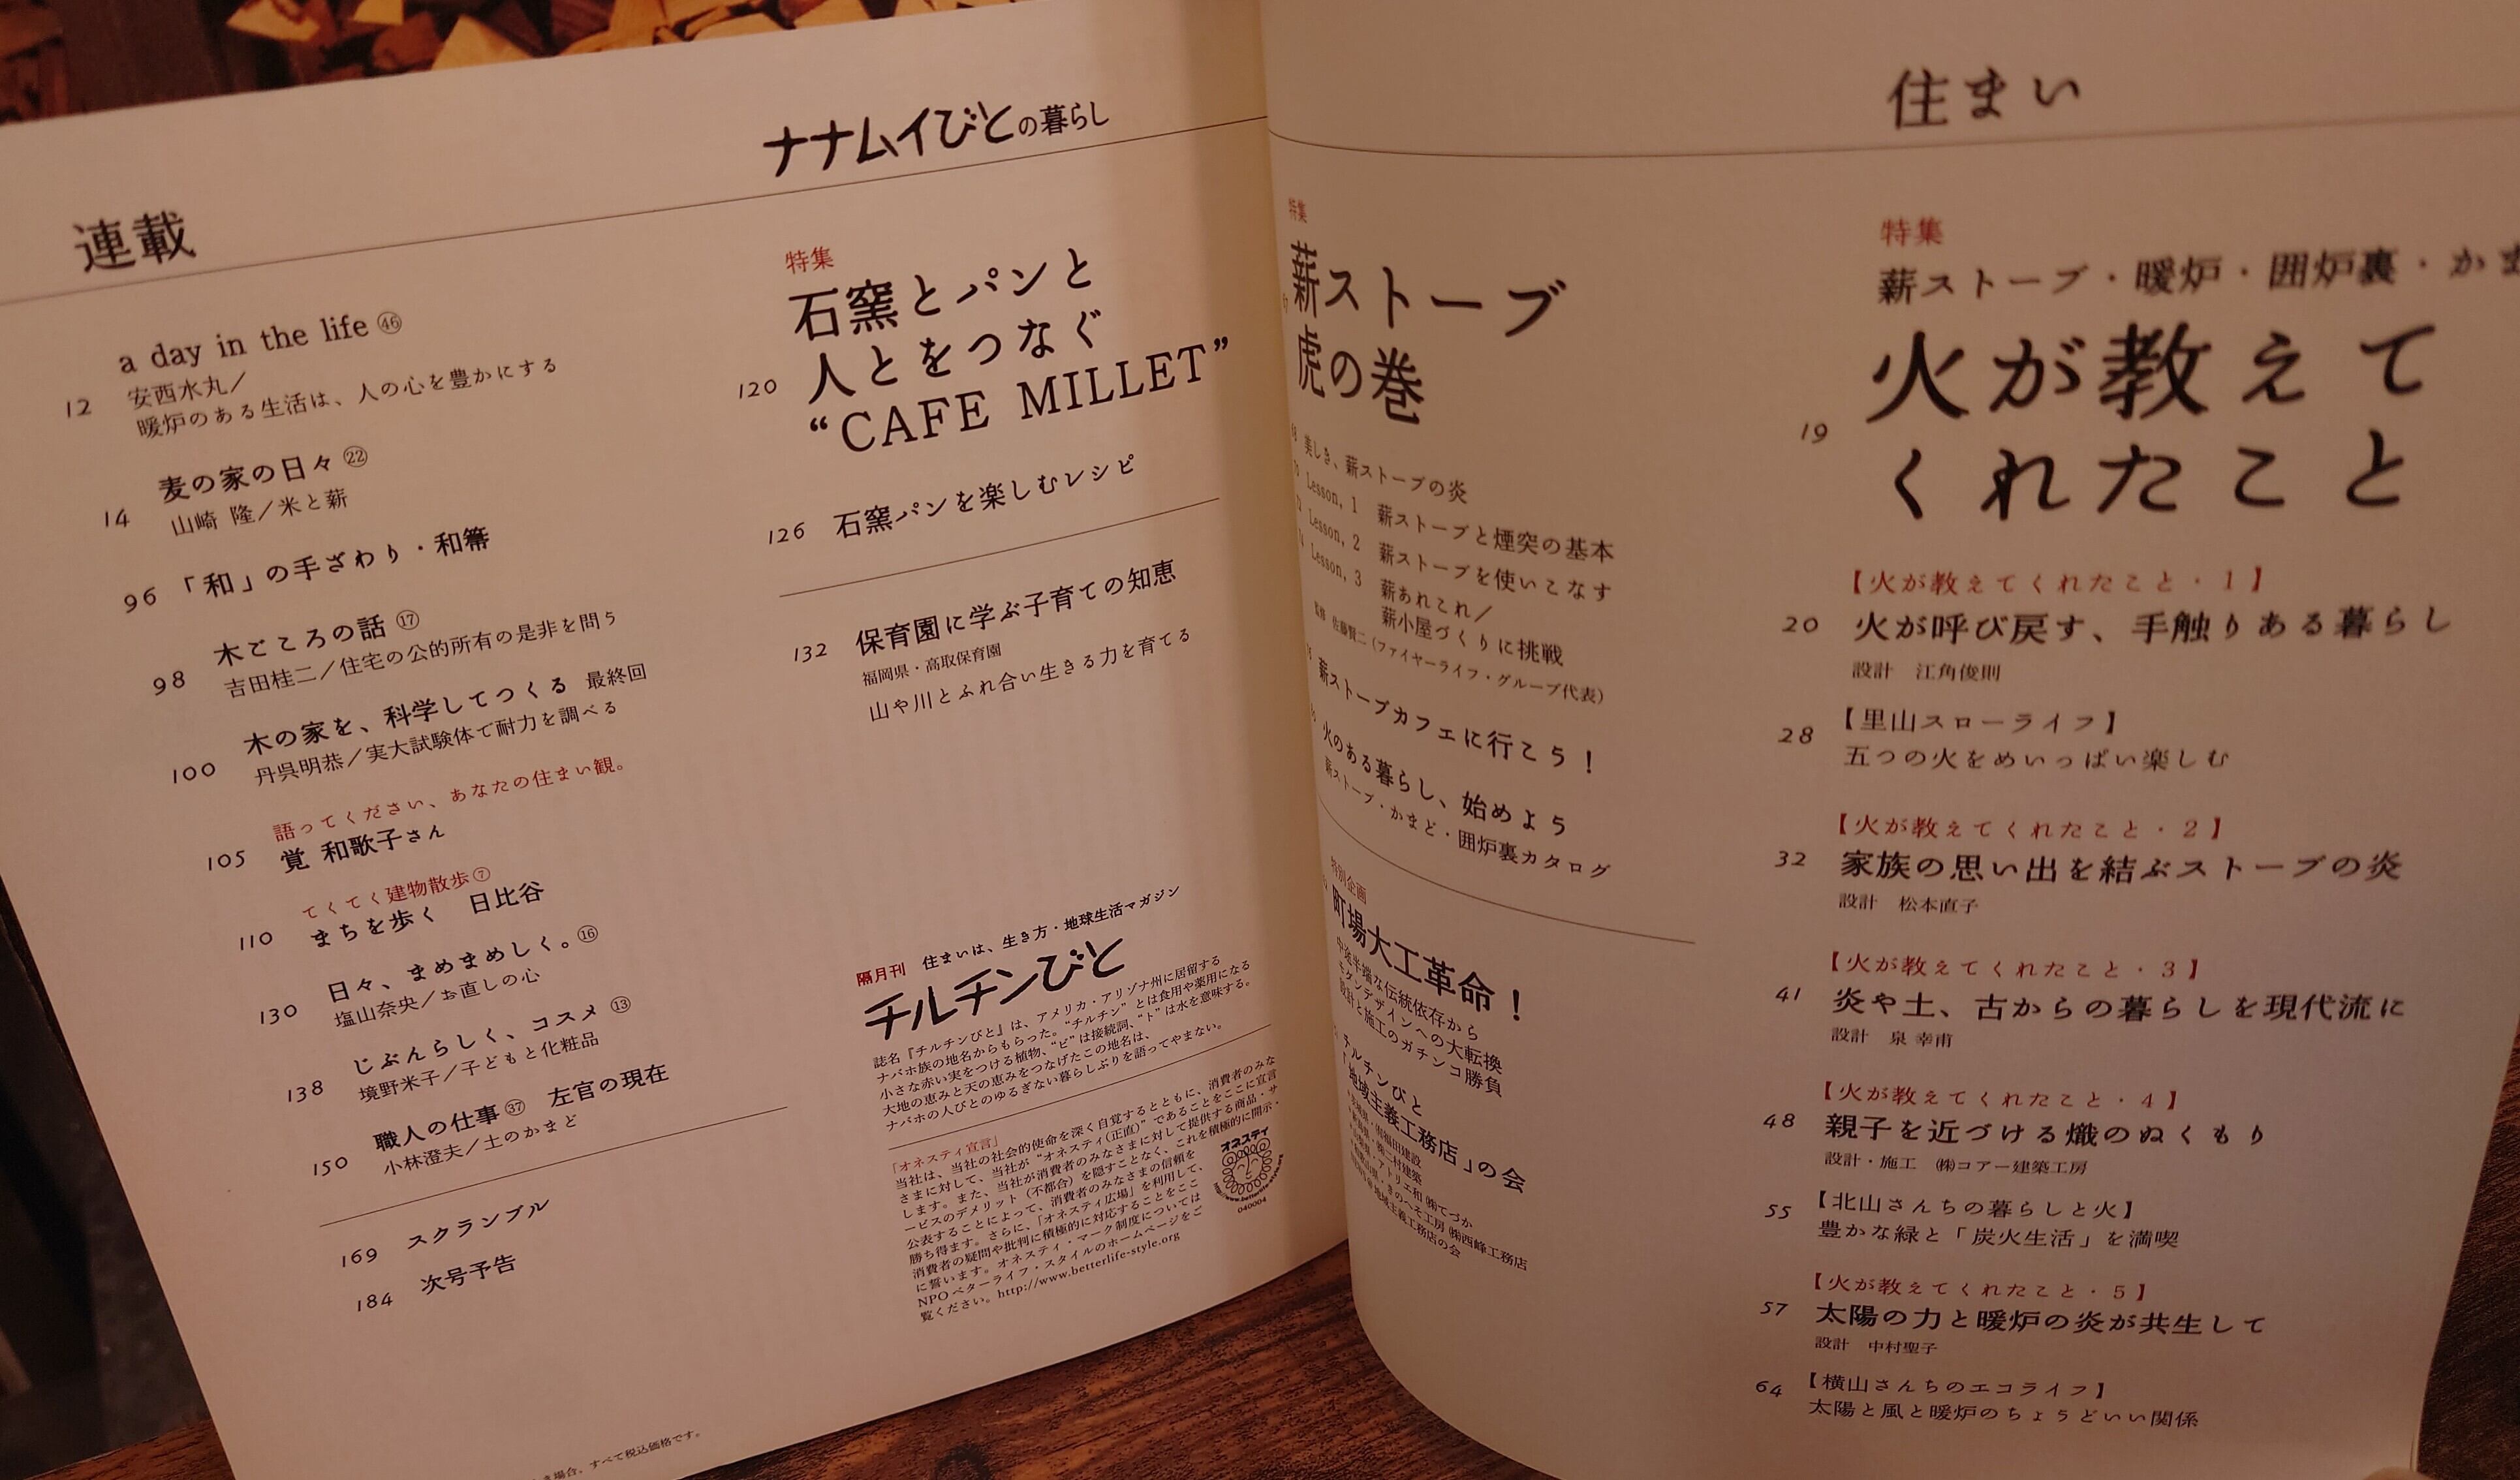 連載
a day in the life ㊻
12 安西水丸／
暖炉のある生活は、人の心を豊かにする
麦の家の日々 ㉒
14 山崎 隆／米と薪
96 「和」の手ざわり・和箒
木ごころの話 ⑰
98 吉田桂二／住宅の公的所有の是非を問う
木の家を、科学してつくる 最終回
100 丹呉明恭／実大試験体で耐力を調べる
語ってください、あなたの住まい観。
105 覚 和歌子さん
てくてく建物散歩⑦
110 まちを歩く 日比谷
日々、まめまめしく。⑯
130 塩山奈央／お直しの心
じぶんらしく、コスメ ⑬
138 境野米子／子どもと化粧品
職人の仕事㊲ 左官の現在
150 小林澄夫／土のかまど
169 スクランブル
184 次号予告
場合、すべて税込価格です。
ナナムイびとの暮らし
特集
石窯とパンと
120 人とをつなぐ
“CAFE MILLET”
126 石窯パンを楽しむレシピ
132 保育園に学ぶ子育ての知恵
福岡県・高取保育園
山や川とふれ合い生きる力を育てる
隔月刊 住まいは、生き方・地球生活マガジン
チルチンびと
誌名『チルチンびと』は、アメリカ・アリゾナ州に居留する
ナバホ族の地名からもらった。“チルチン”とは食用や薬用になる
小さな赤い実をつける植物、“ビ”は接続詞、“ト”は水を意味する。
大地の恵みと天の恵みをつなげたこの地名は、
ナバホの人びとのゆるぎない暮らしぶりを語ってやまない。
「オネスティ宣言」
当社は、当社の社会的使命を深く自覚するとともに、消費者のみな
さまに対して、当社が“オネスティ(正直)”であることをここに宣言
します。また、当社が消費者のみなさまに対して提供する商品・サ
ービスのデメリット（不都合）を隠すことなく、これを積極的に開示・
公表することによって、消費者のみなさまの信頼を
勝ち得ます。さらに、「オネスティ広場」を利用して、
消費者の疑問や批判に積極的に対応することをここ
に誓います。オネスティ・マーク制度については
NPOベターライフ・スタイルのホームページをご
覧ください。http://www.betterlife-style.org
オネスティ
040004
住まい
特集
薪ストーブ
虎の巻
美しき、薪ストーブの炎
Lesson, 1 薪ストーブと煙突の基本
Lesson, 2 薪ストーブを使いこなす
Lesson, 3 薪あれこれ／
薪小屋づくりに挑戦
佐藤賢二（ファイヤーライフ・グループ代表）
薪ストーブカフェに行こう！
火のある暮らし、始めよう
薪ストーブ・かまど・囲炉裏カタログ
特別企画
町場大工革命！
中途半端な伝統依存から
モダンデザインへの大転換
設計と施工のガチンコ勝負
チルチンびと
「地域主義工務店」の会
特集
薪ストーブ・暖炉・囲炉裏・かま
火が教えて
19 くれたこと
【火が教えてくれたこと・1】
20 火が呼び戻す、手触りある暮らし
設計 江角俊則
28 【里山スローライフ】
五つの火をめいっぱい楽しむ
【火が教えてくれたこと・2】
32 家族の思い出を結ぶストーブの炎
設計 松本直子
【火が教えてくれたこと・3】
41 炎や土、古からの暮らしを現代流に
設計 泉 幸甫
【火が教えてくれたこと・4】
48 親子を近づける熾のぬくもり
設計・施工 ㈱コアー建築工房
55 【北山さんちの暮らしと火】
豊かな緑と「炭火生活」を満喫
【火が教えてくれたこと・5】
57 太陽の力と暖炉の炎が共生して
設計 中村聖子
64 【横山さんちのエコライフ】
太陽と風と暖炉のちょうどいい関係